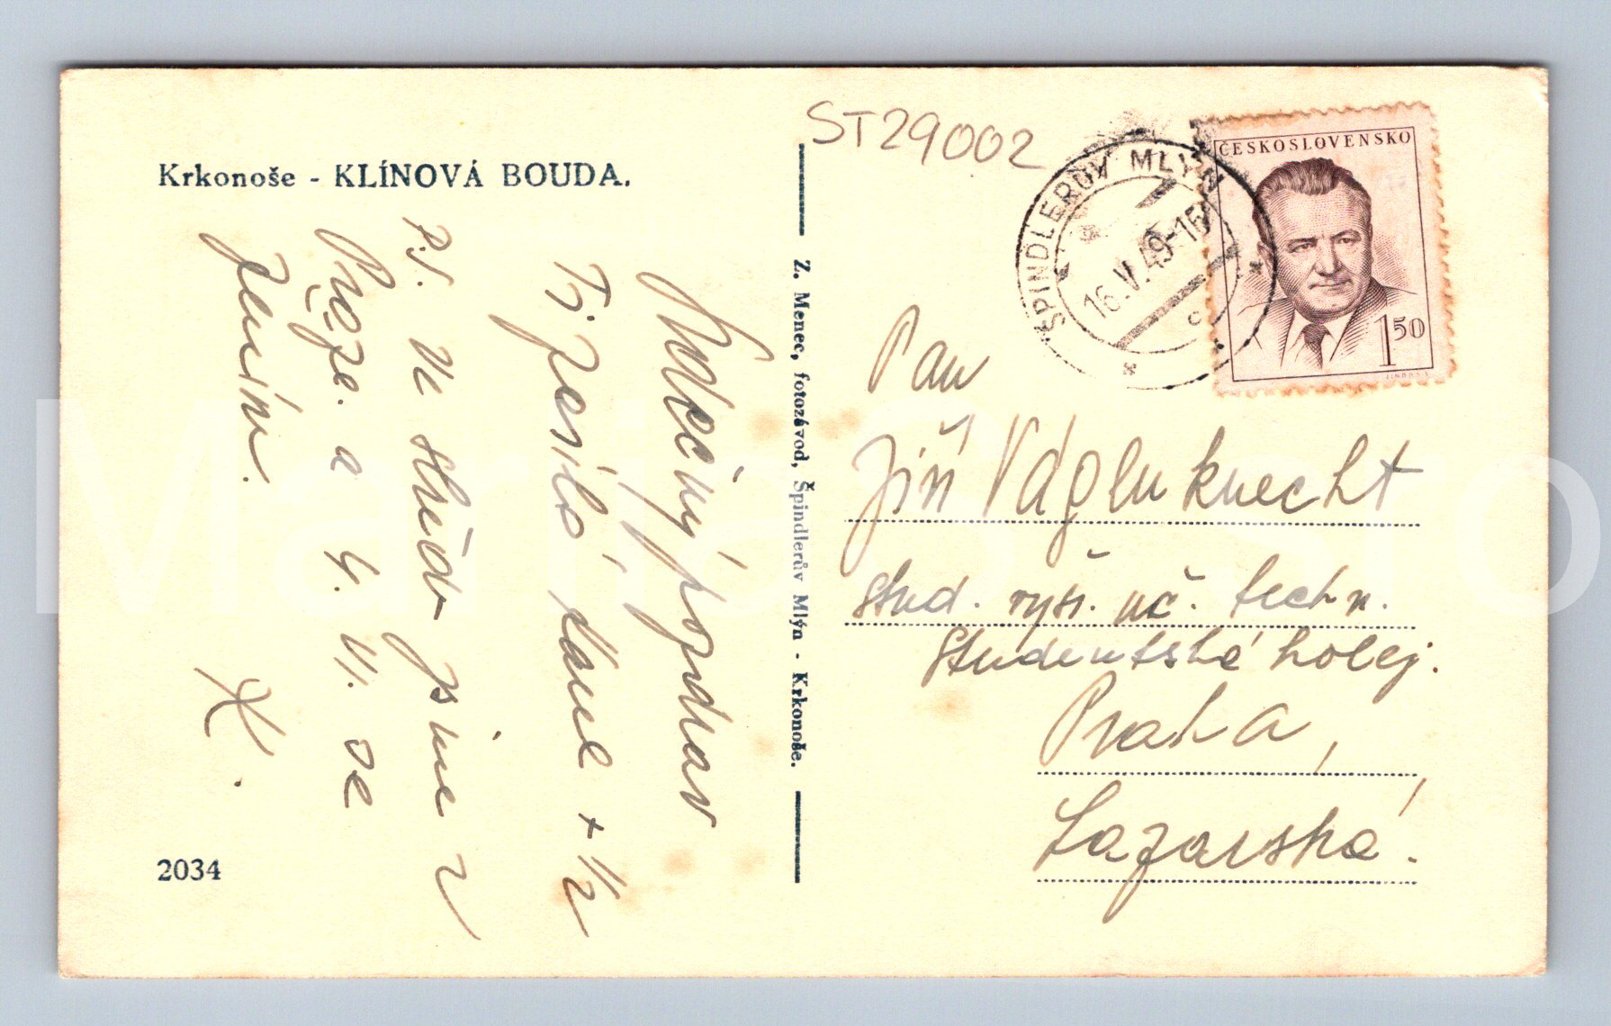 Krkonoše - KLÍNOVÁ BOUDA.
Srdečný pozdrav
Ti zasílá
+ 1/2
P.S. Ve středu jsme v
Praze. a 4. VI. se
žením.
X.
2034
Z. Menec, fotozávod, Špindlerův Mlýn - Krkonoše.
ST29002
ŠPINDLERŮV MLÝN
16.V.49-16
c
ČESKOSLOVENSKO
1 50
Pan
Jiří Váglunknecht
stud. vys. uč. techn.
Studentská kolej.
Praha,
Lazarská.